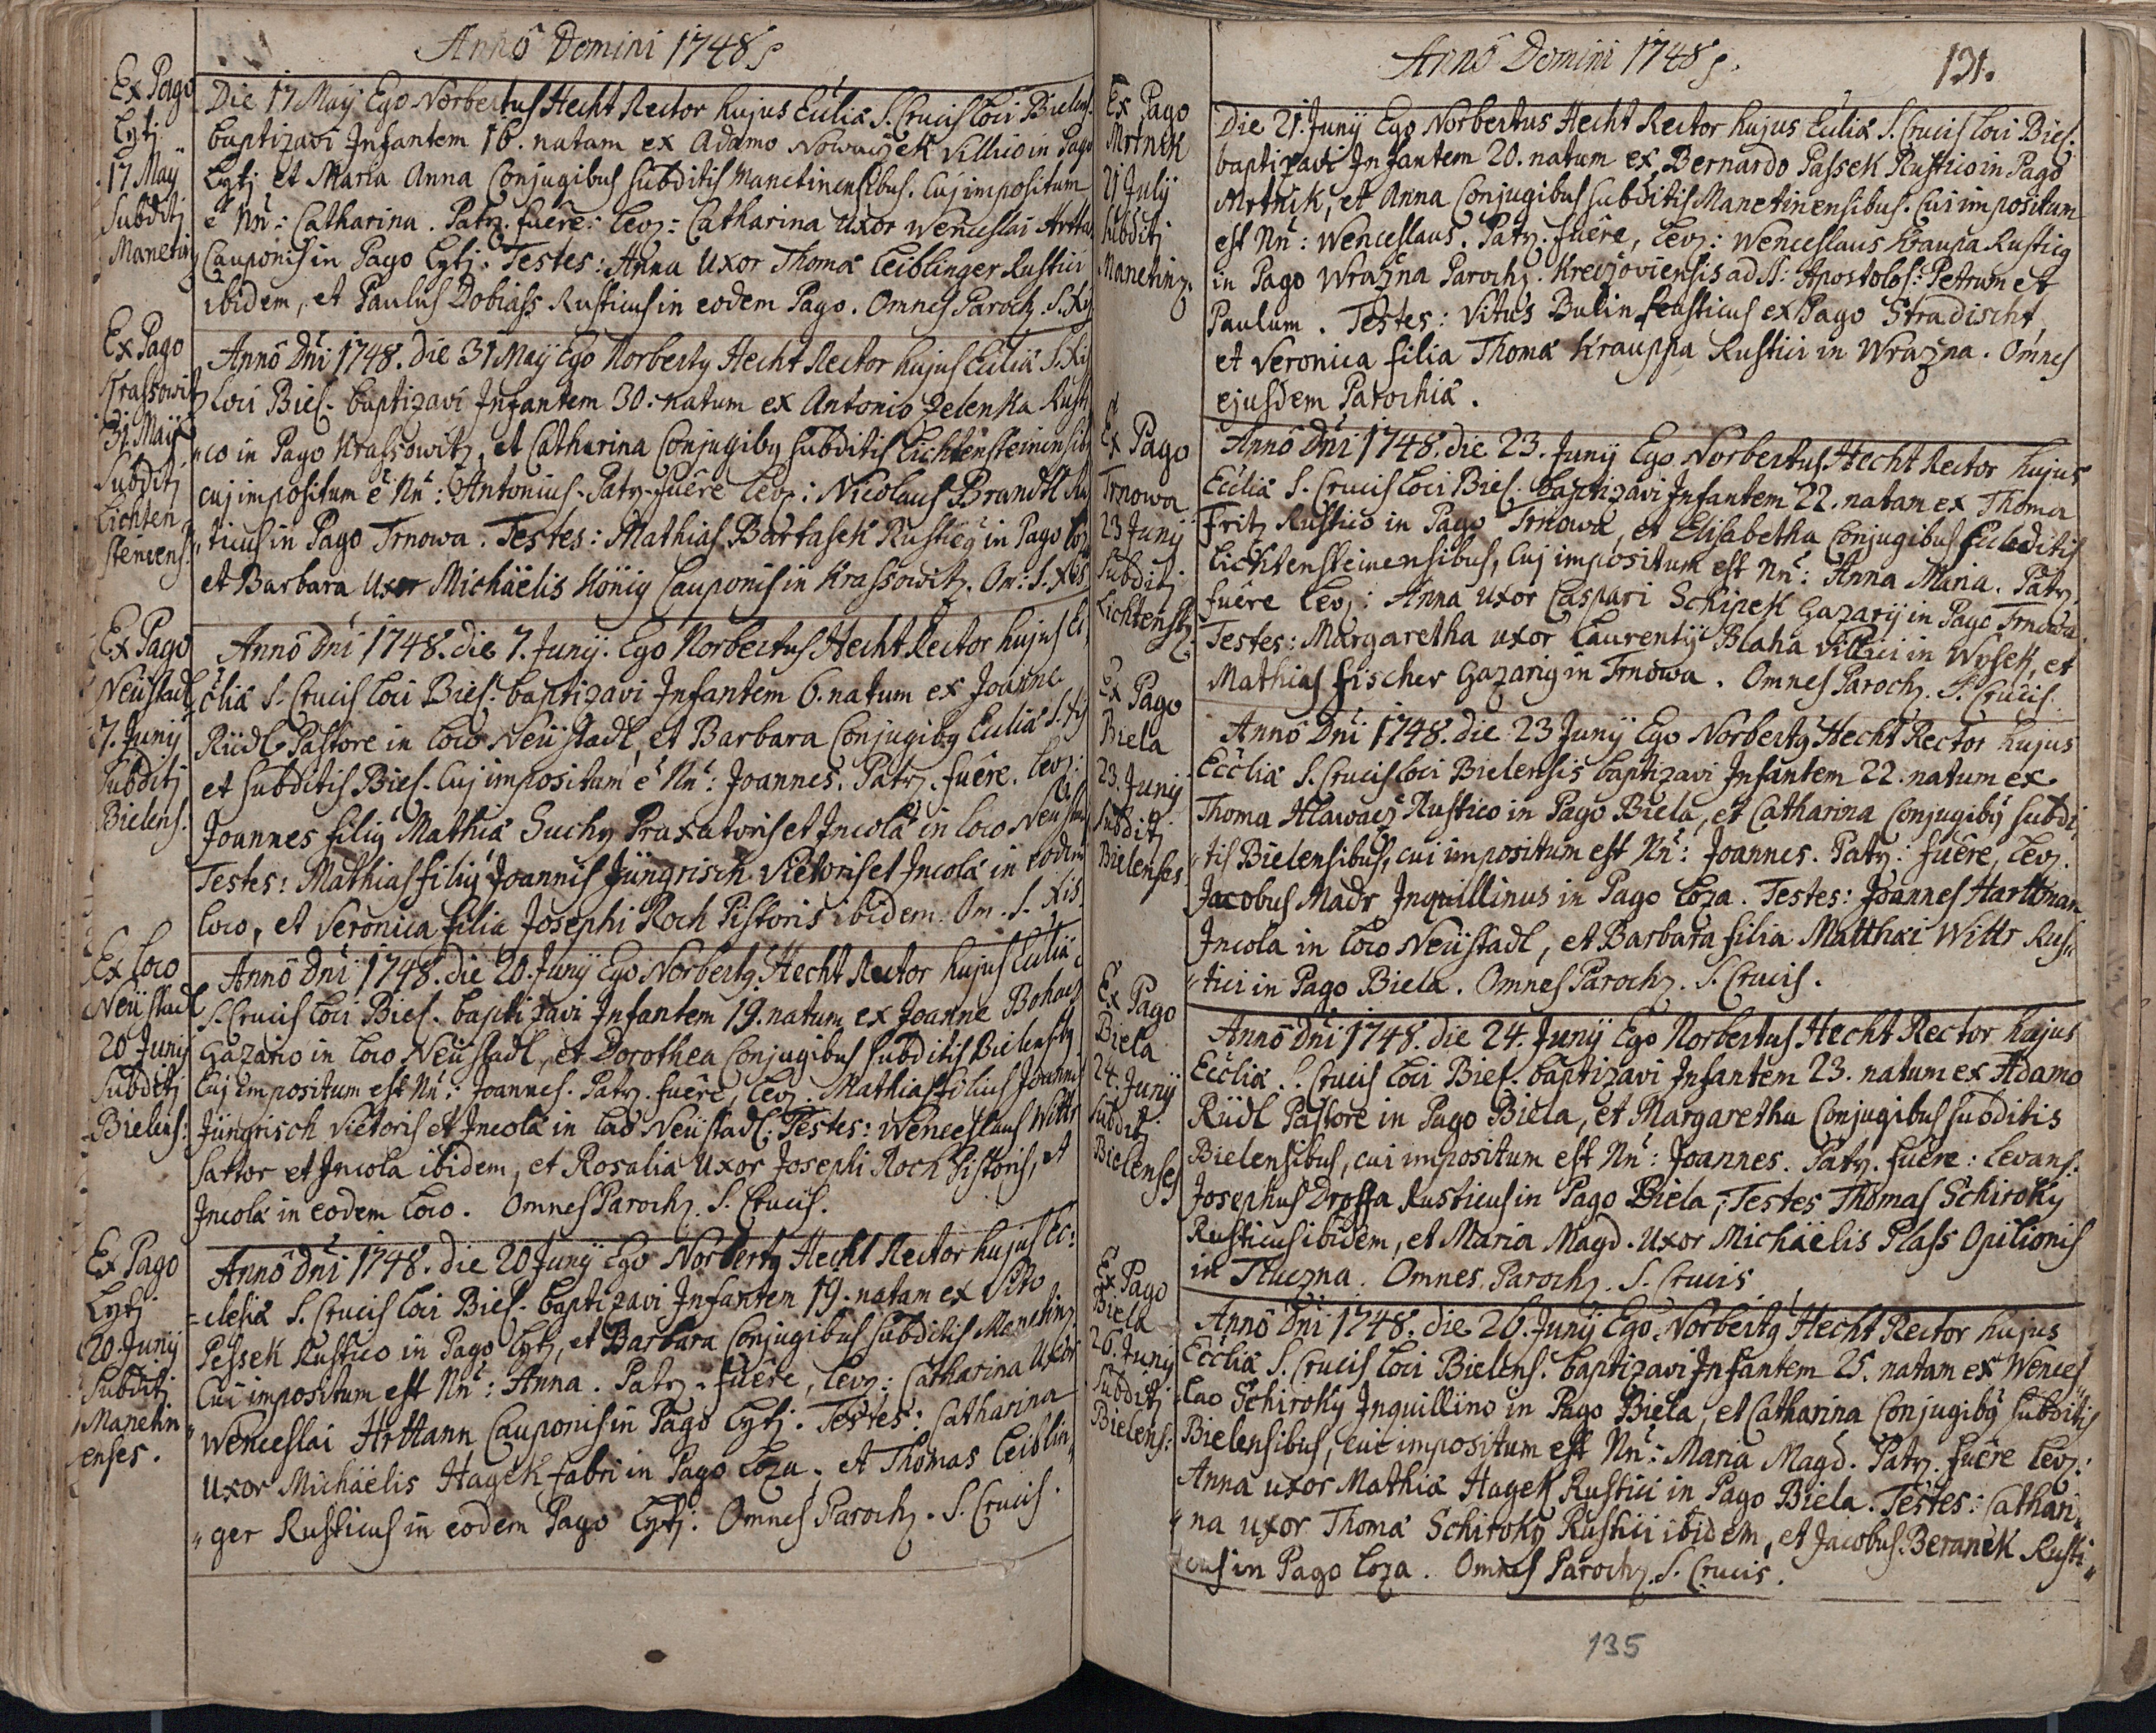 Annô Domini 1748
Ex Pago
Lytj
17 Maÿ
Subditj
Manetin
Die 17 Maÿ Ego Norbertus Hecht Rector hujus Ecclia S. Crucis Loci Bielens.
baptizavi Infantem 16. natam ex Adamo Nowaÿek Villico in Pago
Lytj et Maria Anna Conjugibus subditis Manetinensibus. Cuj impositum
e Nn: Catharina. Patz. fuêre: Levz: Catharina Uxor Wenceslai Arttan
Cauponis in Pago Lytj. Testes: Anna Uxor Thoma Leiblinger Rustici
ibidem, et Paulus Dobiass Rusticus in eodem Pago. Omnes Paroch. S.
Ex Pago
Krassowitz
31 Maÿ
Subditj
Lichten
steinens.
Annô Dni 1748. die 31 Maÿ Ego Norbertg Hecht Rector hujus Ecclia S. Xis
Loci Biel. baptizavi Infantem 30. natum ex Antonio Zelenka Rusti
"co in Pago Krassowitz, et Catharina Conjugibg subditis Lichtensteinensib
cuj impositum e Nn: Antonius. Patz. fuêre Levz: Nicolaus Brandtl Rus
"ticus in Pago Trnowa. Testes: Mathias Bartasek Rusticg in Pago Loz
et Barbara Uxor Michäelis König Cauponis in Krassowitz. Om: S. Xis
Ex Pago
Neüstadl
7. Junÿ
Subditj
Bielens.
Annô Dni 1748. die 7. Junÿ. Ego Norbertus Hecht Rector hujus Ec
clia S. Crucis Loci Biel. baptizavi Infantem 6. natum ex Joanne
Rüdl Pastore in Loco Neüstadl, et Barbara Conjugibg Ecclia S. Xis
et subditis Biel. Cuj impositum e Nn: Joannes. Patz. fuêre. Levz:
Joannes filig Mathia Suchy Praxatoris et Incola in Loco Neustadl
Testes: Mathias filig Joannis Jüngrisch Vietoris et Incola in eodem
loco, et Veronica filia Josephi Roch Pistoris ibidem. Om. S. Xis.
Ex Loco
Neüstadl
20 Junÿ
Subditj
Bielens:
Annô Dni 1748. die 20. Junÿ Ego Norbertg Hecht Rector hujus Ecclia
S. Crucis Loci Biel. baptizavi Infantem 19. natum ex Joanne Bohacz
Gazario in loco Neüstadl, et Dorothea Conjugibus subditis Bielensibg.
Cuj impositum est Nn: Joannes. Patz. fuêre, Levz. Mathias filius Joannis
Jüngrisch Vietoris et Incola in Loco Neüstadl. Testes: Wenceslaus Wittr
Sartor et Incola ibidem, et Rosalia Uxor Josephi Roch Pistoris, et
Incola in eodem Loco. Omnes Paroch. S. Crucis.
Ex Pago
Lytj
20. Junÿ
Subditj
Manetin
enses.
Annô Dni 1748. die 20 Junÿ Ego Norbertg Hecht Rector hujus Ec:
=clesia S. Crucis Loci Biel. baptizavi Infantem 19. natam ex Vito
Pessek Rustico in Pago Lytj, et Barbara Conjugibus subditis Manetinz
Cui impositum est Nn: Anna. Patz. fuêre, Levz: Catharina Uxor
"Wenceslai Arttann Cauponis in Pago Lytj. Testes: Catharina
Uxor Michäelis Hagek fabri in Pago Loza, et Thomas Leiblin"
"ger Rusticus in eodem Pago Lytj. Omnes Paroch. S. Crucis.
Annô Domini 1748
131.
Ex Pago
Mrtnik
21 Julÿ
Subditj
Manetinz.
Die 21. Junÿ Ego Norbertus Hecht Rector hujus Ecclia S. Crucis Loci Biel.
baptizavi Infantem 20. natum ex Bernardo Passek Rustico in Pago
Mrtnik, et Anna Conjugibus subditis Manetinensibus. Cui impositum
est Nn: Wenceslaus. Patz. fuêre, Levz: Wenceslaus Kraupa Rusticg
in Pago Wrazna Parochz. Kreczoviensis ad SS: Apostolos: Petrum et
Paulum. Testes: Vitus Bulin Rusticus ex Pago Stradischt,
et Veronica filia Thoma Krauppa Rustici in Wrazna. Omnes
ejusdem Parochia.
Ex Pago
Trnowa
23 Junÿ
Subditj
Lichtenstz.
Annô Dni 1748. die 23. Junÿ Ego Norbertus Hecht Rector hujus
Ecclia S. Crucis Loci Biel. baptizavi Infantem 22. natam ex Thoma
Fritz Rustico in Pago Trnowa, et Elisabetha Conjugibus subditis
Lichtensteinensibus, cuj impositum est Nn: Anna Maria. Patz.
fuêre Levz: Anna uxor Caspari Schipek Gazarÿ in Pago Trnowa.
Testes: Margaretha uxor Laurentÿ Blaha Villici in Wysek, et
Mathias Fischer Gazarig in Trnowa. Omnes Paroch. S. Crucis.
Ex Pago
Biela
23. Junÿ
Subditj
Bielenses
Annô Dni 1748. die 23 Junÿ Ego Norbertg Hecht Rector hujus
Ecclia S. Crucis Loci Bielensis baptizavi Infantem 22. natum ex
Thoma Hlawacz Rustico in Pago Biela, et Catharina Conjugibg subdi"
"tis Bielensibus, cui impositum est Nn: Joannes. Patz: fuêre, Levz.
Jacobus Madr Inquillinus in Pago Loza. Testes: Joannes Harttman
Incola in loco Neüstadl, et Barbara filia Matthai Wittr Rus"
"tici in Pago Biela. Omnes Paroch. S. Crucis.
Ex Pago
Biela
24. Junÿ
Subditj
Bielenses
Annô Dni 1748. die 24. Junÿ Ego Norbertus Hecht Rector hujus
Ecclia S. Crucis Loci Biel. baptizavi Infantem 23. natum ex Adamo
Rüdl Pastore in Pago Biela, et Margaretha Conjugibus subditis
Bielensibus, cui impositum est Nn: Joannes. Patz. fuêre: Levans.
Josephus Drossa Rusticus in Pago Biela; Testes Thomas Schiroky
Rusticus ibidem, et Maria Magd. Uxor Michäelis Plass Opilionis
in Tluczna. Omnes Paroch. S. Crucis
Ex Pago
Biela
26. Junÿ
Subditj
Bielens:
Annô Dni 1748. die 26. Junÿ Ego Norbertg Hecht Rector hujus
Ecclia S. Crucis Loci Bielens. baptizavi Infantem 25. natam ex Wences"
"lao Schiroky Inquillino in Pago Biela, et Catharina Conjugibg subditis
Bielensibus, cui impositum est Nn: Maria Magd. Patz. fuêre Levz:
Anna uxor Mathia Hagek Rustici in Pago Biela. Testes: Cathari"
"na uxor Thoma Schiroky Rustici ibidem, et Jacobus Beranek Rusti"
"cus in Pago Loza. Omnes Paroch. S. Crucis.
135